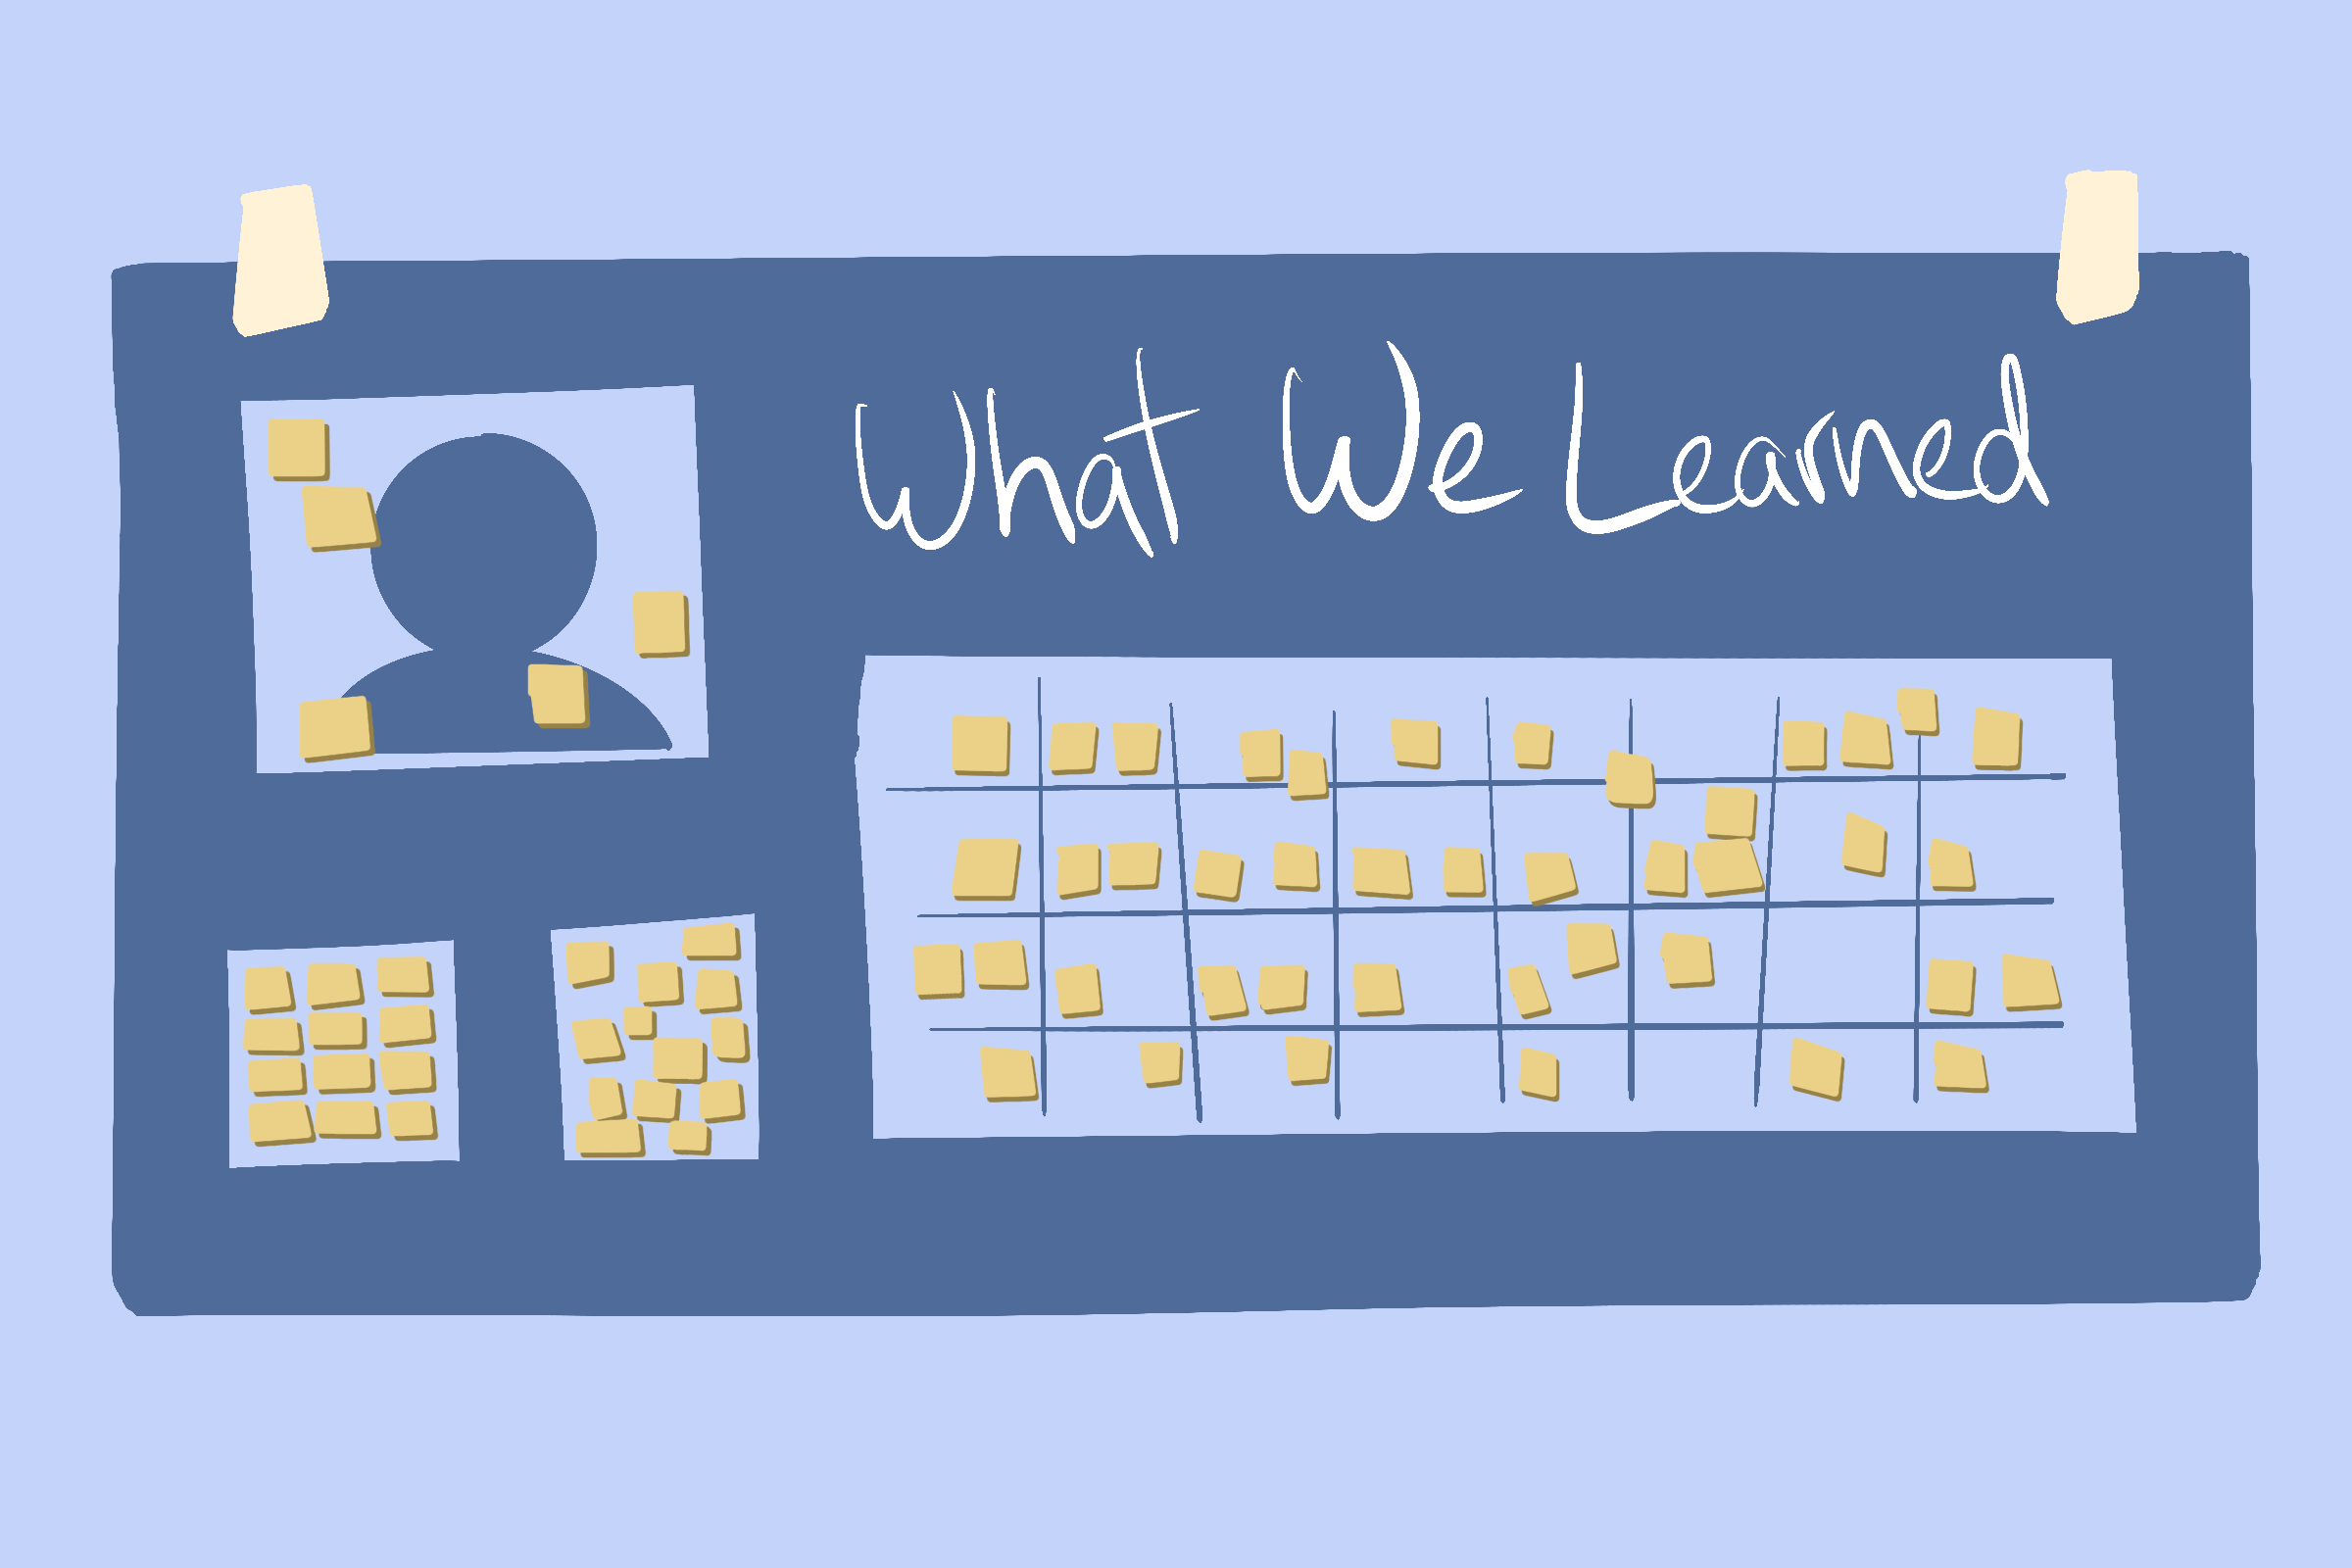 What We Learned